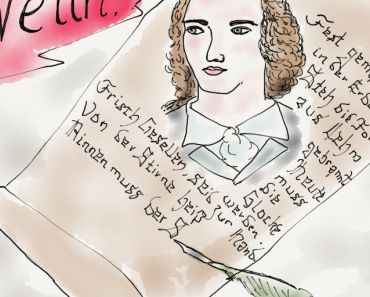 Fest gem
in der Erde
die Fo
aus Lehm
gebrannt
Heute muss
die Glocke
werden.
Frisch Gesellen, seid zur Hand
Von der Stirne heiß
Rinnen muss der S